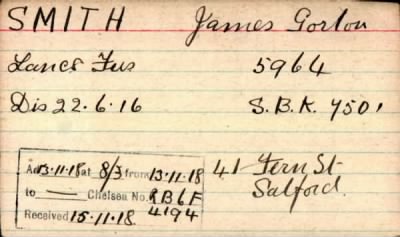 SMITH James Gorton
Lancs Fus 5964
Dis 22.6.16 S.B.R. 7501
Ad 13.11.18 at 8/3 from 13.11.18
to — Chelsea No. RB6F
Received 15.11.18 4194
41 Fern St
Salford.